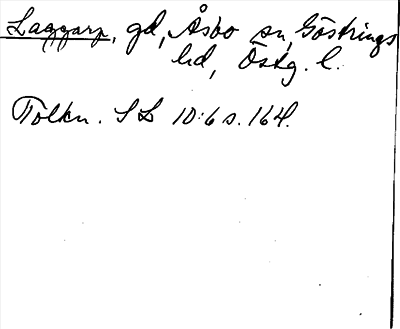 Laggarp, gd, Åsbo sn, Göstrings
hd, Östg. l.
Tolkn. SL 10:6 s. 164.